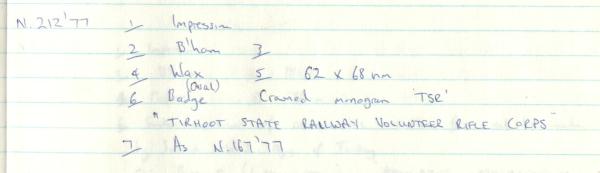 N.212'77 1/ Impression
2/ B'ham 3/
4/ Wax 5/ 62 x 68 mm
(Oval)
6/ Badge Crowned monogram 'TSR'
"TIRHOOT STATE RAILWAY VOLUNTEER RIFLE CORPS"
7/ As N.167'77